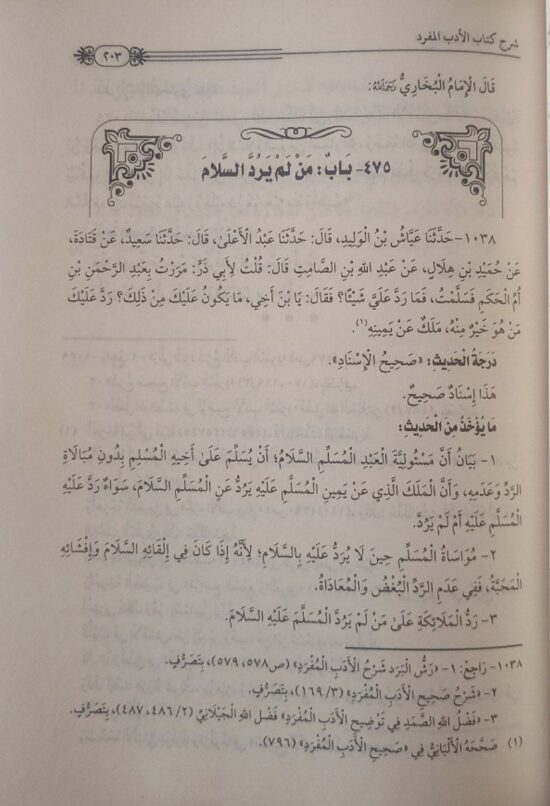 شرح كتاب الأدب المفرد
٢٠٣
قَالَ الْإِمَامُ الْبُخَارِيُّ رَحِمَهُ اللهُ:
٤٧٥- بَابُ: مَنْ لَمْ يَرُدَّ السَّلَامَ
١٠٣٨- حَدَّثَنَا عَيَّاشُ بْنُ الْوَلِيدِ، قَالَ: حَدَّثَنَا عَبْدُ الْأَعْلَىٰ، قَالَ: حَدَّثَنَا سَعِيدٌ، عَنْ قَتَادَةَ،
عَنْ حُمَيْدِ بْنِ هِلَالٍ، عَنْ عَبْدِ اللهِ بْنِ الصَّامِتِ قَالَ: قُلْتُ لِأَبِي ذَرٍّ: مَرَرْتُ بِعَبْدِ الرَّحْمَنِ بْنِ
أُمِّ الْحَكَمِ فَسَلَّمْتُ، فَمَا رَدَّ عَلَيَّ شَيْئًا؟ فَقَالَ: يَا بْنَ أَخِي، مَا يَكُونُ عَلَيْكَ مِنْ ذَلِكَ؟ رَدَّ عَلَيْكَ
مَنْ هُوَ خَيْرٌ مِنْهُ، مَلَكٌ عَنْ يَمِينِهِ(١).
دَرَجَةُ الْحَدِيثِ: «صَحِيحُ الْإِسْنَادِ».
هَذَا إِسْنَادٌ صَحِيحٌ.
مَا يُؤْخَذُ مِنَ الْحَدِيثِ:
١- بَيَانُ أَنَّ مَسْئُولِيَّةَ الْعَبْدِ الْمُسَلِّمِ السَّلَامُ؛ أَنْ يُسَلِّمَ عَلَىٰ أَخِيهِ الْمُسْلِمِ بِدُونِ مُبَالَاةِ
الرَّدِّ وَعَدَمِهِ، وَأَنَّ الْمَلَكَ الَّذِي عَنْ يَمِينِ الْمُسَلَّمِ عَلَيْهِ يَرُدُّ عَنِ الْمُسَلِّمِ السَّلَامَ، سَوَاءٌ رَدَّ عَلَيْهِ
الْمُسَلَّمِ عَلَيْهِ أَمْ لَمْ يَرُدَّ.
٢- مُوَاسَاةُ الْمُسَلِّمِ حِينَ لَا يُرَدُّ عَلَيْهِ بِالسَّلَامِ؛ لِأَنَّهُ إِذَا كَانَ فِي إِلْقَائِهِ السَّلَامَ وَإِفْشَائِهِ
الْمَحَبَّةُ، فَفِي عَدَمِ الرَّدِّ الْبُغْضُ وَالْمُعَادَاةُ.
٣- رَدُّ الْمَلَائِكَةِ عَلَىٰ مَنْ لَمْ يَرُدَّ الْمُسَلَّمَ عَلَيْهِ السَّلَامَ.
١٠٣٨- رَاجِعْ: ١- «رَشُّ الْبَرَدِ شَرْحُ الْأَدَبِ الْمُفْرَدِ» (ص٥٧٨، ٥٧٩)، بِتَصَرُّفٍ.
٢- «شَرْحُ صَحِيحِ الْأَدَبِ الْمُفْرَدِ» (٣/ ١٦٩)، بِتَصَرُّفٍ.
٣- «فَضْلُ اللهِ الصَّمَدِ فِي تَوْضِيحِ الْأَدَبِ الْمُفْرَدِ» فَضْل اللهِ الْجَيْلَانِيِّ (٢/ ٤٨٦، ٤٨٧)، بِتَصَرُّفٍ.
(١) صَحَّحَهُ الْأَلْبَانِيُّ فِي «صَحِيحِ الْأَدَبِ الْمُفْرَدِ» (٧٩٦).